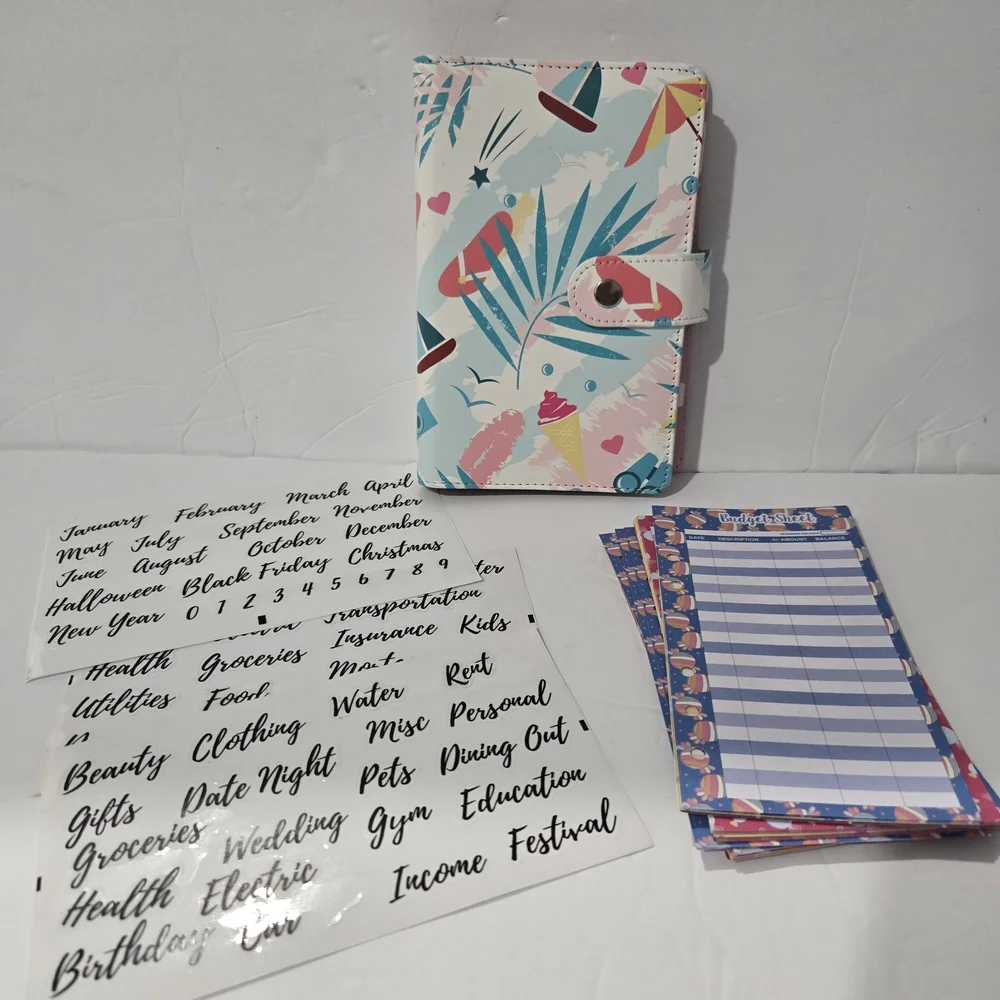 January February March April
May July September November
June August October December
Halloween Black Friday Christmas
New Year 0 1 2 3 4 5 6 7 8 9
Transportation
Health Groceries Insurance Kids
Utilities Food Rent
Beauty Clothing Water
Misc Personal
Gifts Date Night Pets Dining Out
Groceries Wedding Gym Education
Health Electric Income Festival
Birthday Car
Budget Sheet
DATE DESCRIPTION AMOUNT BALANCE